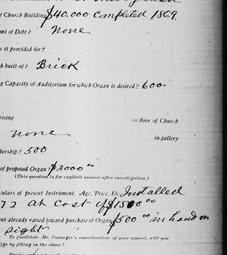 f Church Building, $40,000 Completed 1869.
unt of Debt? None
s it provided for?
h built of? Brick
g Capacity of Auditorium for which Organ is desired? 600
rising on floor of Church
None in gallery
bership? 500
of proposed Organ $3000 00
(This question is for explicit answer after investigation.)
culars of present Instrument. Age, Price, Etc. Installed
72 at Cost of $1500 00
nt already raised toward purchase of Organ $500 00 in hand on
sight
To facilitate Mr. Carnegie's consideration of your appeal, will you
ge by filling in the above?